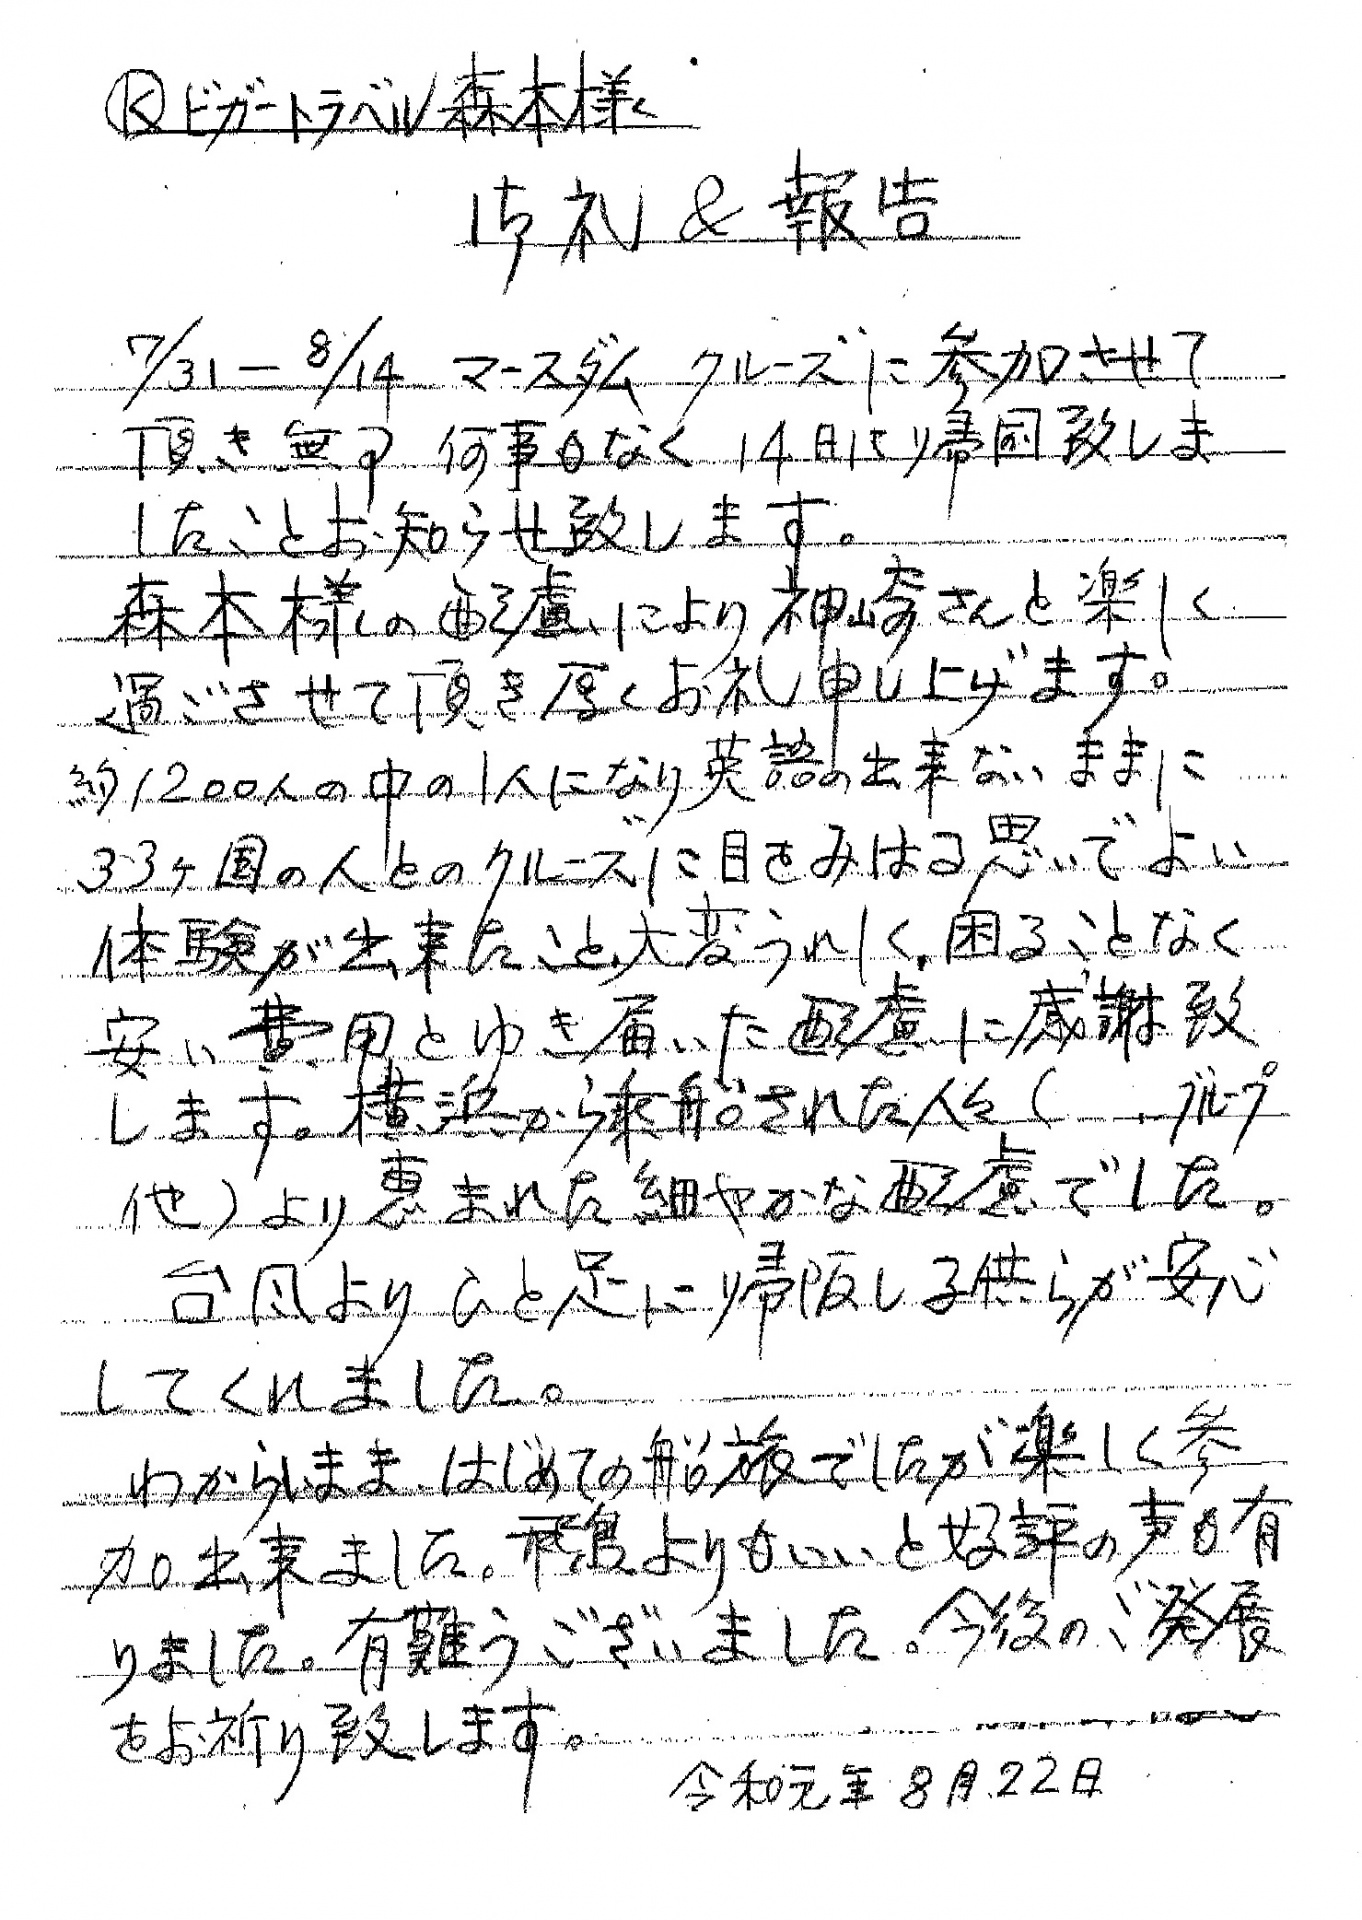 Ⓚビガートラベル森本様
御礼&報告
7/31ー8/14 マースダム クルーズに参加させて
頂き無事何事もなく14日に帰国致しま
したことお知らせ致します。
森本様の配慮により神崎さんと楽しく
過ごさせて頂き厚くお礼申し上げます。
約1200人の中の1人になり英語の出来ないままに
33ヶ国の人とのクルーズに目をみはる思いでよい
体験が出来たこと大変うれしく、困ることなく
安い費用とゆき届いた配慮に感謝致
します。横浜から乗船された人を( グループ
他)より恵まれた細やかな配慮でした。
台風よりひと足に帰阪し子供らが安心
してくれました。
わからいまま、はじめての船旅でしたが楽しく参
加出来ました。飛鳥よりもいいと好評の声も有
りました。有難うございました。今後のご発展
をお祈り致します。
令和元年8月22日